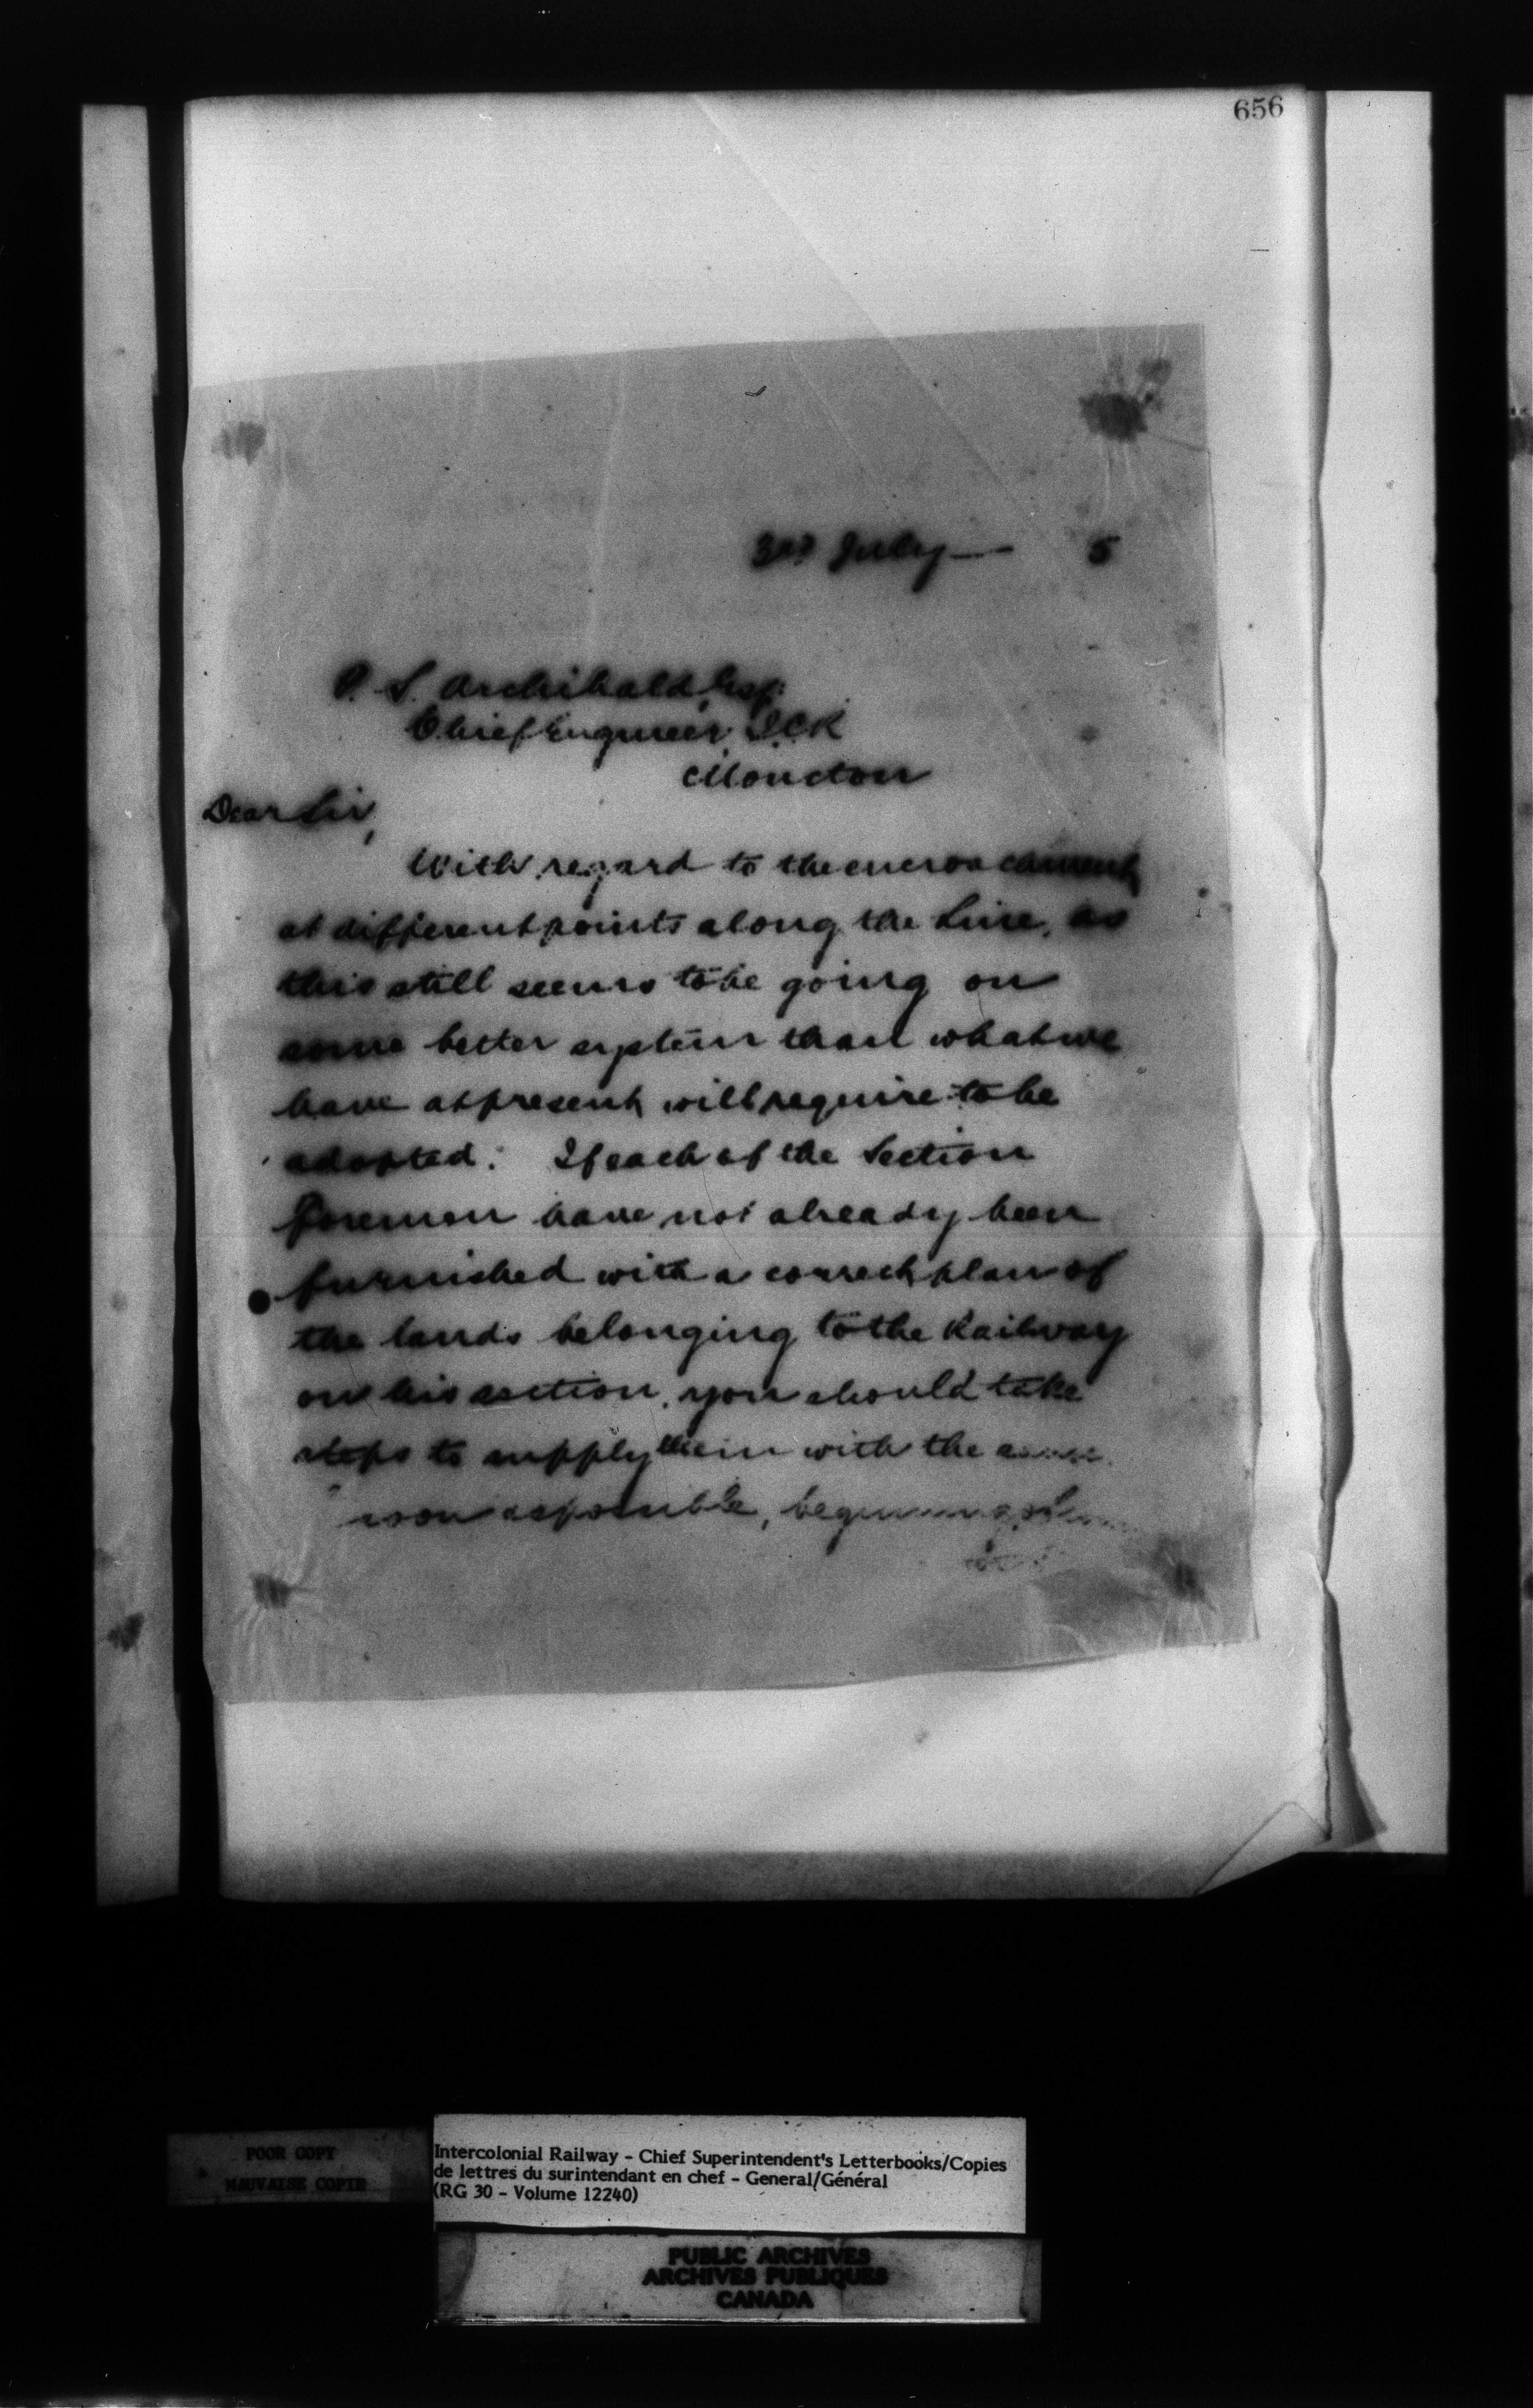 656
3rd July — 5
P. S. Archibald, Esq:
Chief Engineer, ICR
Moncton
Dear Sir,
With regard to the encroachments
at different points along the Line, as
this still seems to be going on
some better system than what we
have at present, will require to be
adopted. If each of the Section
foremen have not already been
furnished with a correct plan of
the lands belonging to the Railway
on his section, you should take
steps to supply them with the
soon as possible,
POOR COPY
MAUVAISE COPIE
Intercolonial Railway - Chief Superintendent's Letterbooks/Copies
de lettres du surintendant en chef - General/Général
(RG 30 - Volume 12240)
PUBLIC ARCHIVES
ARCHIVES PUBLIQUES
CANADA